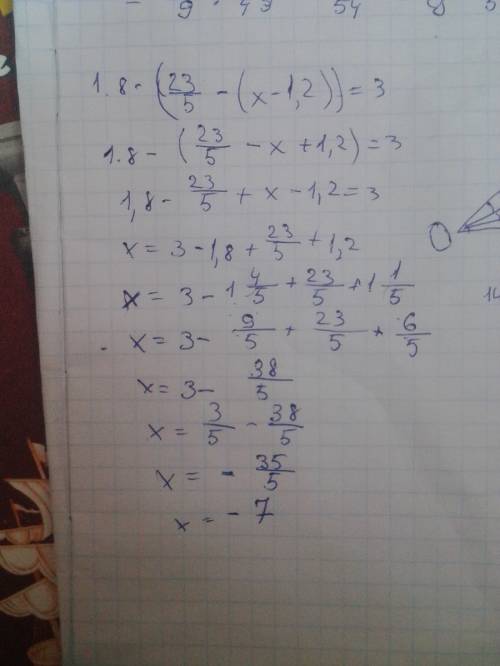 9 · 49 54 8 5
1.8 - (23/5 - (x - 1,2)) = 3
1.8 - (23/5 - x + 1,2) = 3
1,8 - 23/5 + x - 1,2 = 3
x = 3 - 1,8 + 23/5 + 1,2
x = 3 - 1 4/5 + 23/5 + 1 1/5
x = 3 - 9/5 + 23/5 + 6/5
x = 3 - 38/5
x = 3/5 - 38/5
x = - 35/5
x = - 7
O
14